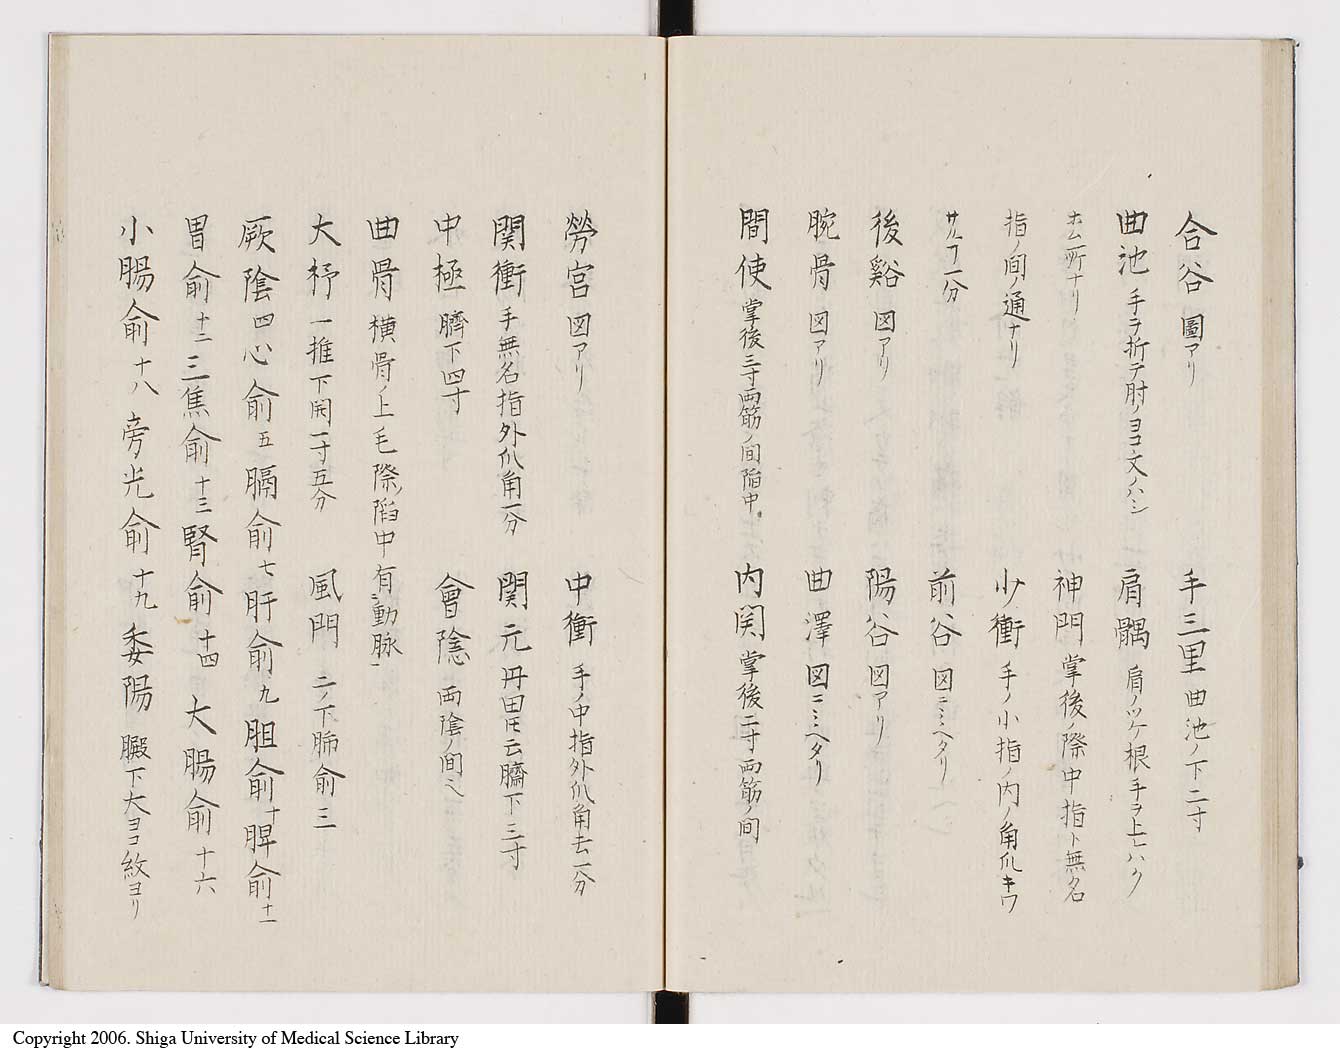 合谷 圖アリ 手三里 曲池ノ下二寸
曲池 手ヲ折テ肘ノヨコ文ノハシ 肩髃 肩ノツケ根手ヲ上レハク
ホム所ナリ 神門 掌後ノ際中指ト無名
指ノ間ノ通ナリ 少衝 手ノ小指ノ内ノ角爪キワ
サル一分 前谷 図ニミヘタリ
後谿 図アリ 陽谷 図アリ
腕骨 図アリ 曲澤 図ニミヘタリ
間使 掌後三寸両筋ノ間陷中 内関 掌後二寸両筋ノ間
勞宮 図アリ 中衝 手ノ中指外爪角去一分
関衝 手無名指外爪角一分 関元 丹田氏云臍下三寸
中極 臍下四寸 會陰 両陰ノ間
曲骨 横骨ノ上毛際陷中有動脉
大杼 一推下開一寸五分 風門 二ノ下肺俞三
厥陰四心俞五膈俞七肝俞九胆俞十脾俞十一
胃俞十二三焦俞十三腎俞十四大腸俞十六
小腸俞十八旁光俞十九委陽 臀下大ヨコ紋ヨリ
Copyright 2006. Shiga University of Medical Science Library